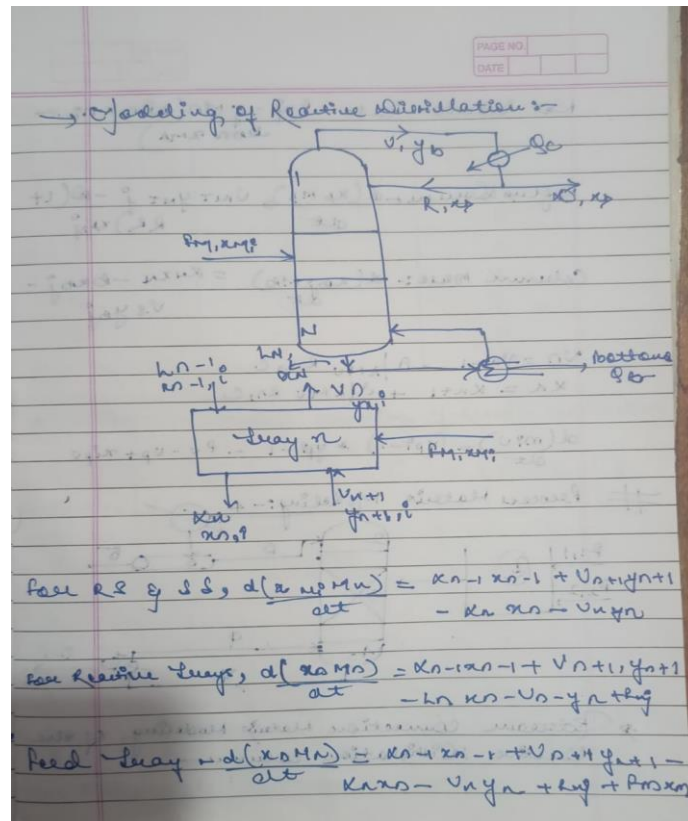 PAGE NO.
DATE
→ Modeling of Reactive Distillation :-
V, yD
Qc
1
R, xD
D, xD
FM, xMi
N
LN,
xN
bottoms
QB
Ln-1,
xn-1, i
Vn
yn, i
Tray n
FM, xMi
Ln
xn, i
Vn+1
yn+1, i
For RS & SS, d(xn Mn)/dt = Ln-1 xn-1 + Vn+1 yn+1
- Ln xn - Vn yn
For Reactive Trays, d(xn Mn)/dt = Ln-1 xn-1 + Vn+1, yn+1
- Ln xn - Vn - yn + Rnj
Feed Tray - d(xn Mn)/dt = Ln-1 xn-1 + Vn+1 yn+1 -
Ln xn - Vn yn + Rnj + FM xM